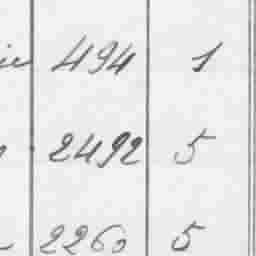 494 1
2492 5
2260 5